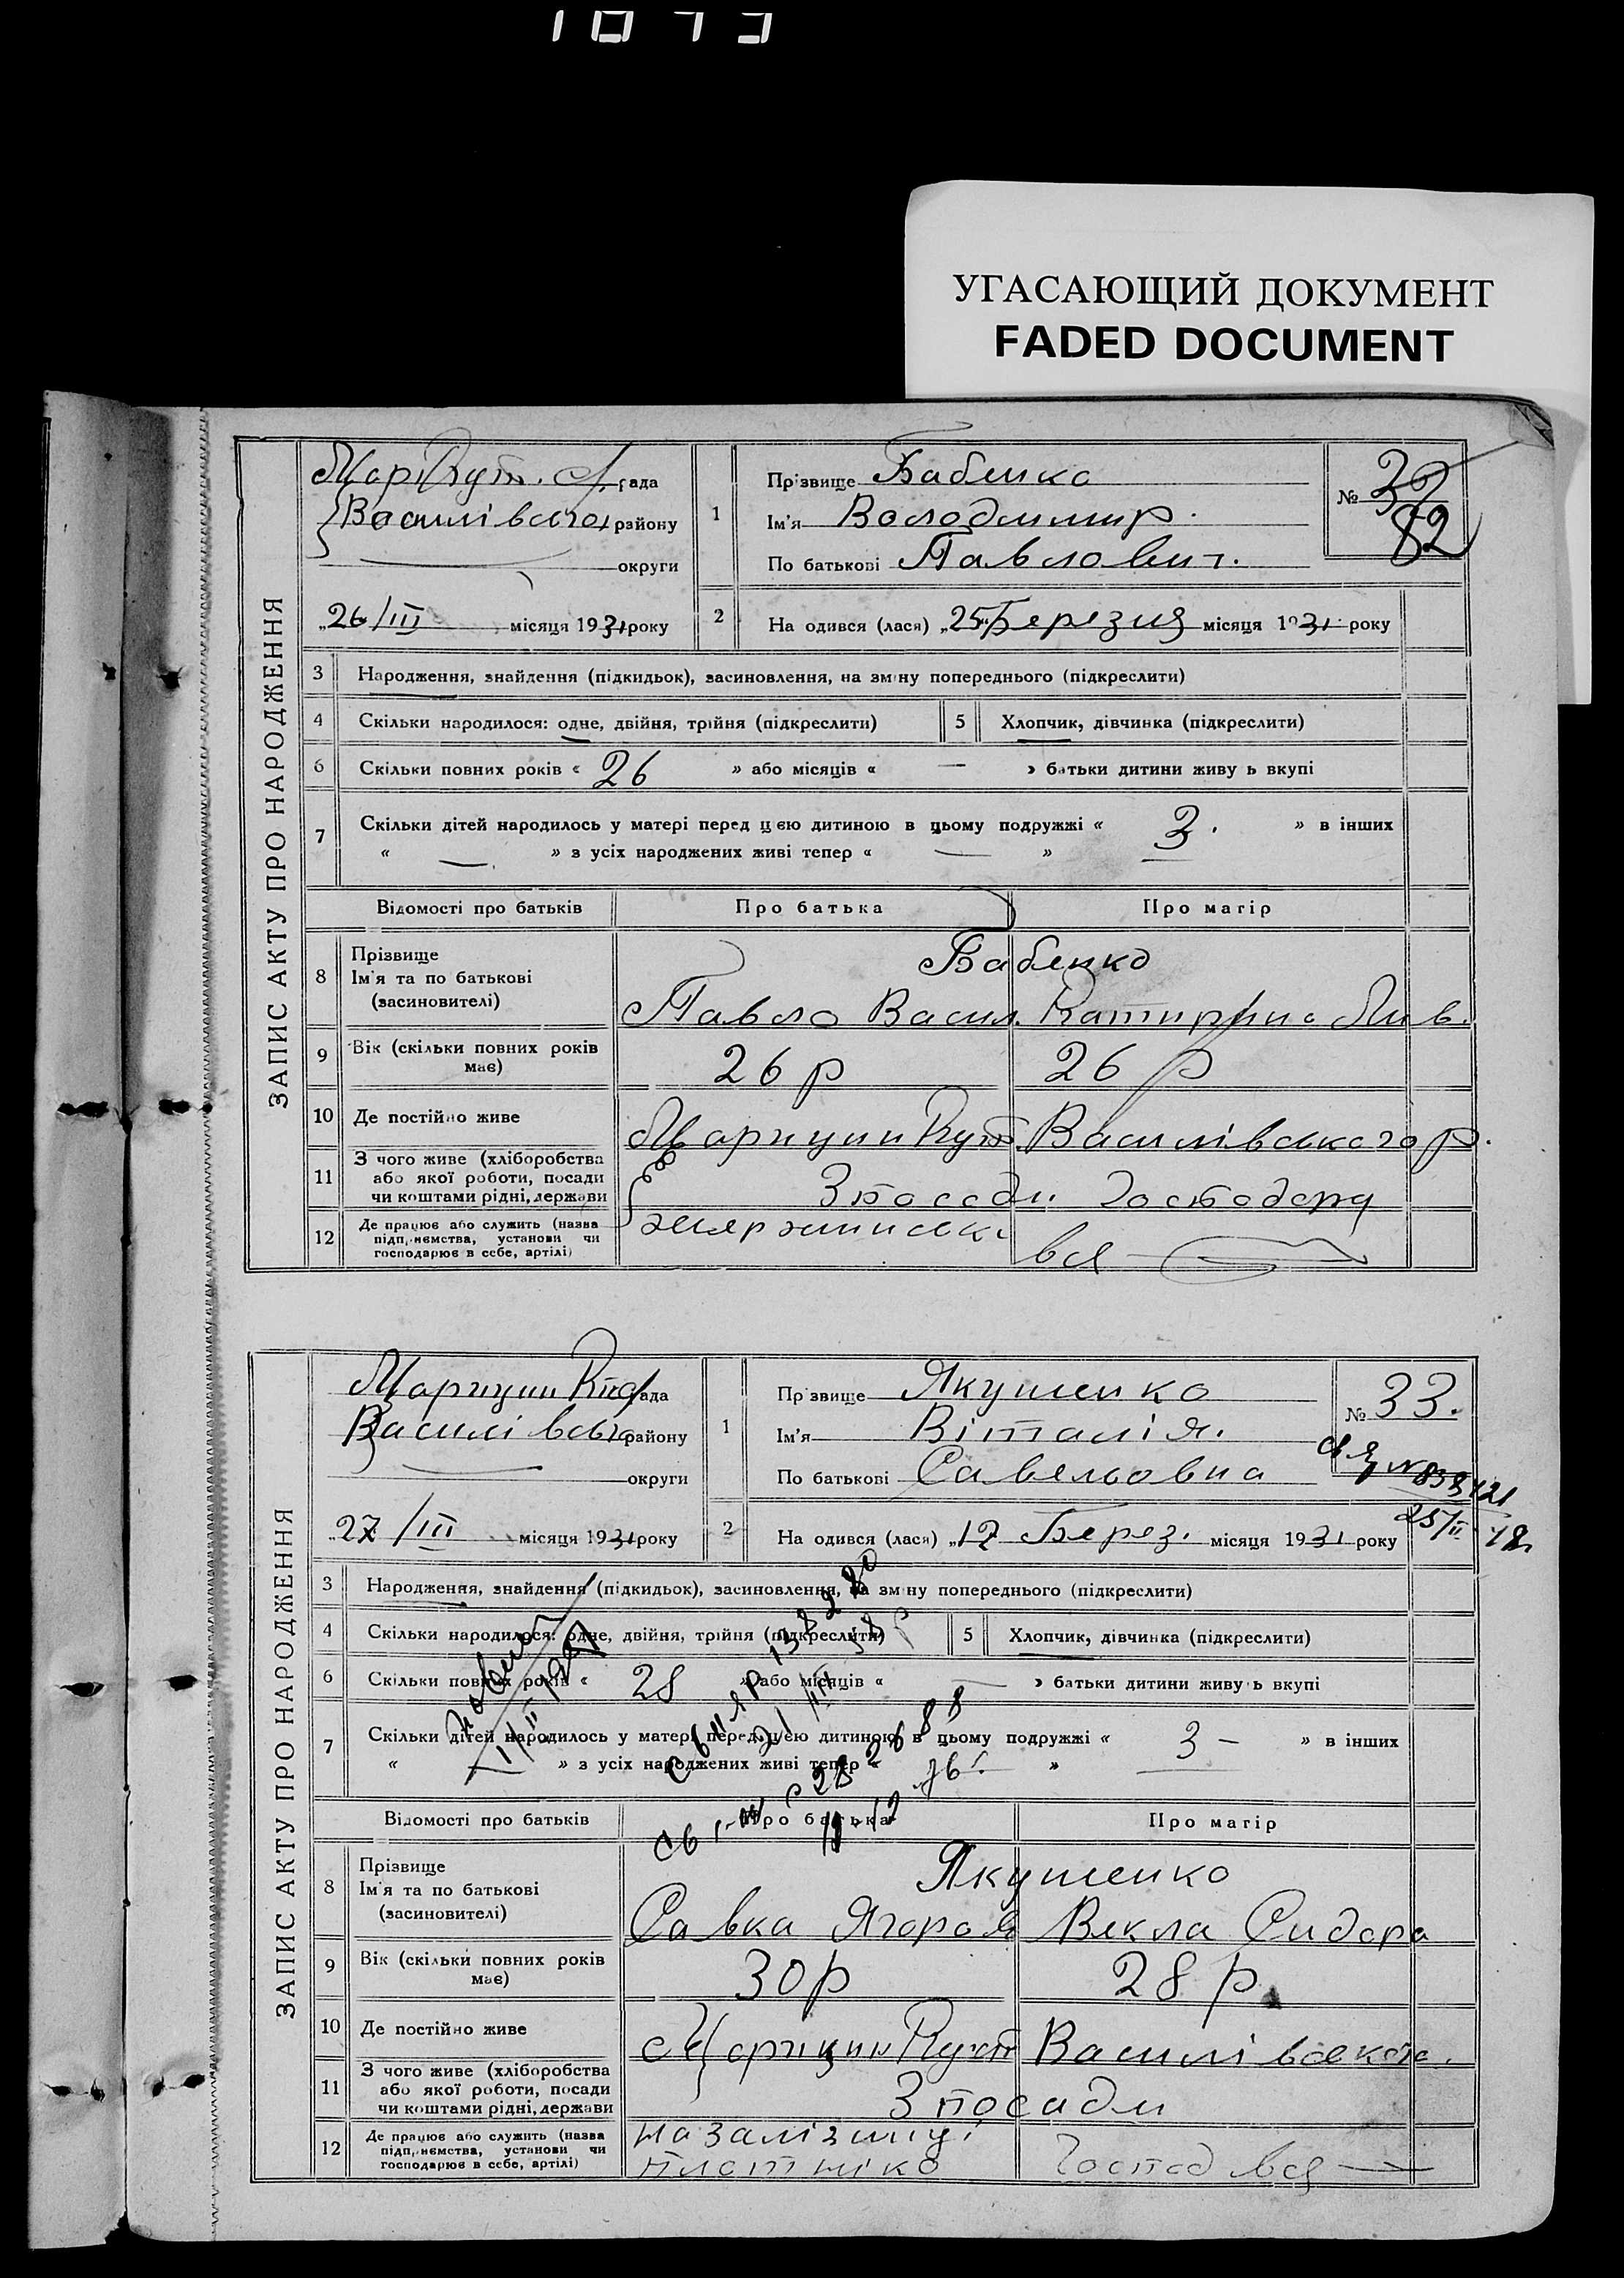 1073
УГАСАЮЩИЙ ДОКУМЕНТ
FADED DOCUMENT
ЗАПИС АКТУ ПРО НАРОДЖЕННЯ
Мар Кут. с/рада
Василівськ району
округи
„26/III місяця 1931 року
1 Прізвище Бабенко
Ім'я Володимир.
По батькові Павлович.
№ 32
82
2 На одився (лася) „25" Березня місяця 1931. року
3 Народження, знайдення (підкидьок), засиновлення, на зміну попереднього (підкреслити)
4 Скільки народилося: одне, двійня, трійня (підкреслити) 5 Хлопчик, дівчинка (підкреслити)
6 Скільки повних років « 26 » або місяців « — » батьки дитини живу ь вкупі
7 Скільки дітей народилось у матері перед цією дитиною в цьому подружжі « 3. » в інших
« — » з усіх народжених живі тепер « — »
Відомості про батьків Про батька Про матір
8 Прізвище
Ім'я та по батькові
(засиновителі)
Бабенко
Павло Васил. Катирина
9 Вік (скільки повних років має) 26 р 26 р
10 Де постійно живе Царицин Кут Василівського р.
11 З чого живе (хліборобства або якої роботи, посади чи коштами рідні, держави З посади Господаря
12 Де працює або служить (назва підприємства, установи чи господарює в себе, артілі) вся
ЗАПИС АКТУ ПРО НАРОДЖЕННЯ
Царицин Кут с/рада
Василівськ району
округи
„27/III місяця 1931 року
1 Прізвище Якушенко
Ім'я Віталія.
По батькові Савельовна
№ 33.
25/II
2 На одився (лася) „17 Берез. місяця 1931 року
3 Народження, знайдення (підкидьок), засиновлення, на зміну попереднього (підкреслити)
4 Скільки народилося: одне, двійня, трійня (підкреслити) 5 Хлопчик, дівчинка (підкреслити)
6 Скільки повних років « 28 » або місяців « — » батьки дитини живу ь вкупі
7 Скільки дітей народилось у матері перед цією дитиною в цьому подружжі « 3 — » в інших
« — » з усіх народжених живі тепер « »
Відомості про батьків Про батька Про матір
8 Прізвище
Ім'я та по батькові
(засиновителі)
Якушенко
Савка Ягоров Векла Сидора
9 Вік (скільки повних років має) 30 р 28 р.
10 Де постійно живе Царицин Кут Василівсько
11 З чого живе (хліборобства або якої роботи, посади чи коштами рідні, держави З посади
12 Де працює або служить (назва підприємства, установи чи господарює в себе, артілі) на залізниці
Господ вся